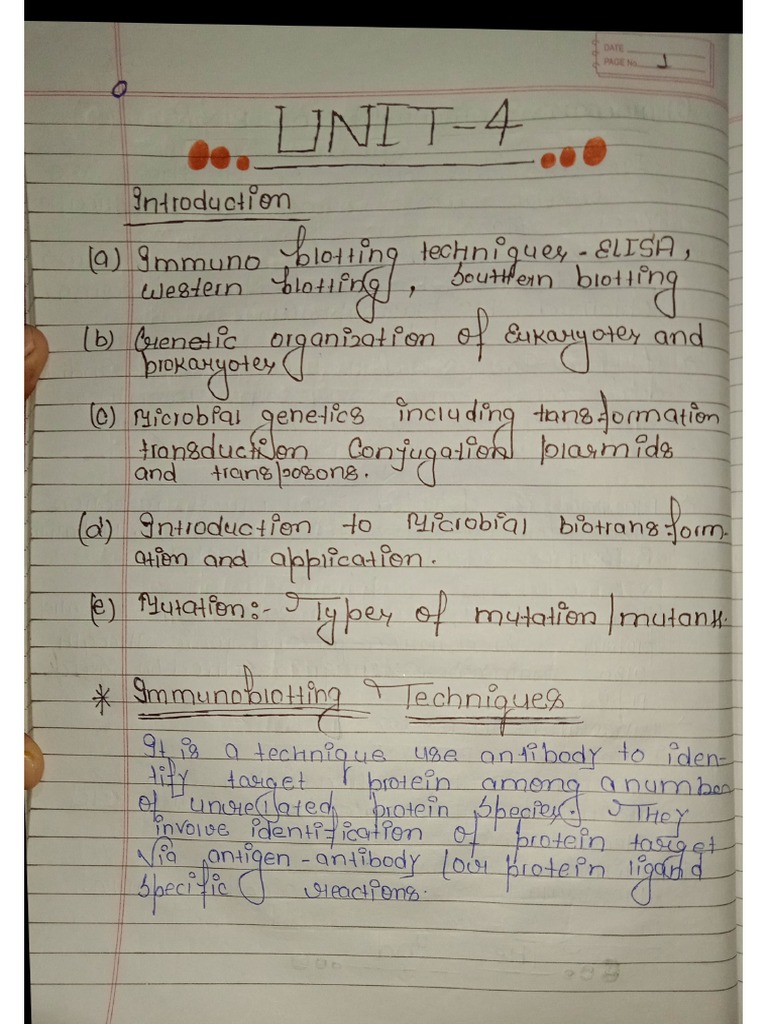 DATE
PAGE No. 1
UNIT-4
Introduction
(a) Immuno blotting techniques - ELISA,
western blotting, Southern blotting
(b) Genetic organization of Eukaryotes and
prokaryotes
(c) Microbial genetics including tansformation
transduction Conjugation plasmids
and transposons.
(d) Introduction to Microbial biotransform-
ation and application.
(e) Mutation:- Types of mutation/mutants.
* Immunoblotting Techniques
It is a technique use antibody to iden-
tify target protein among a number
of unrelated protein species. They
involve identification of protein target
via antigen-antibody (or protein ligand
specific reactions.